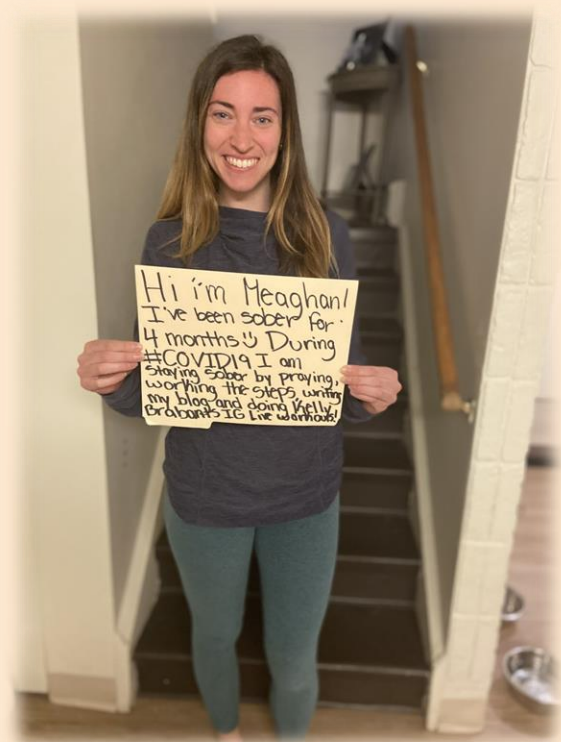 Hi i'm Meaghan!
I've been sober for
4 months☺ During
#COVID19 I am
staying sober by praying,
working the steps writing
my blog and doing Kelly
Brabants IG Live workouts!